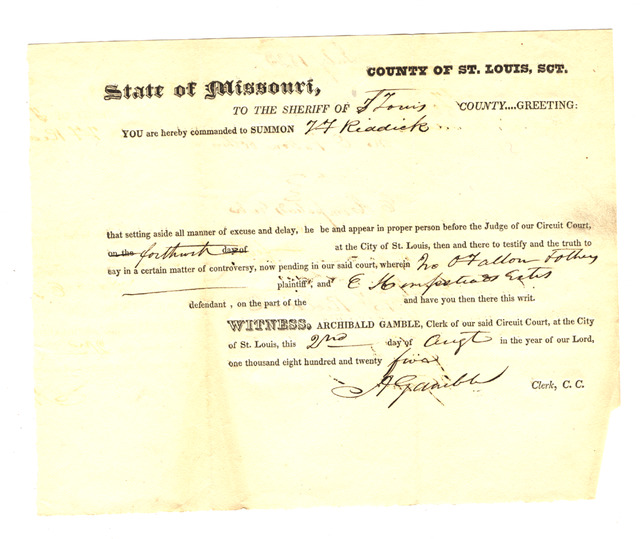 COUNTY OF ST. LOUIS, SCT.
State of Missouri,
TO THE SHERIFF OF St Louis COUNTY....GREETING:
YOU are hereby commanded to SUMMON T F Riddick
that setting aside all manner of excuse and delay, he be and appear in proper person before the Judge of our Circuit Court,
on the forthwith day of at the City of St. Louis, then and there to testify and the truth to
say in a certain matter of controversy, now pending in our said court, wherein Jno O Fallon & others
plaintiff, and E Hempsteads Exts
defendant , on the part of the and have you then there this writ.
WITNESS. ARCHIBALD GAMBLE, Clerk of our said Circuit Court, at the City
of St. Louis, this 2nd day of Augt in the year of our Lord,
one thousand eight hundred and twenty five
A Gamble Clerk, C. C.